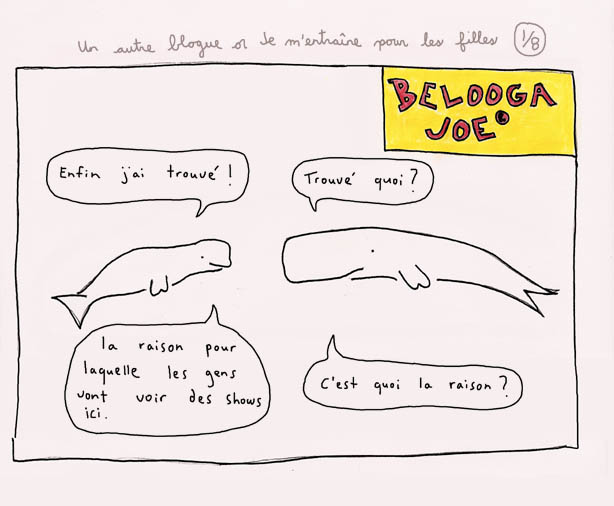 Un autre blogue où Je m'entraîne pour les filles 1/8
BELOOGA
JOE
Enfin j'ai trouvé !
Trouvé quoi ?
la raison pour
laquelle les gens
vont voir des shows
ici.
C'est quoi la raison ?